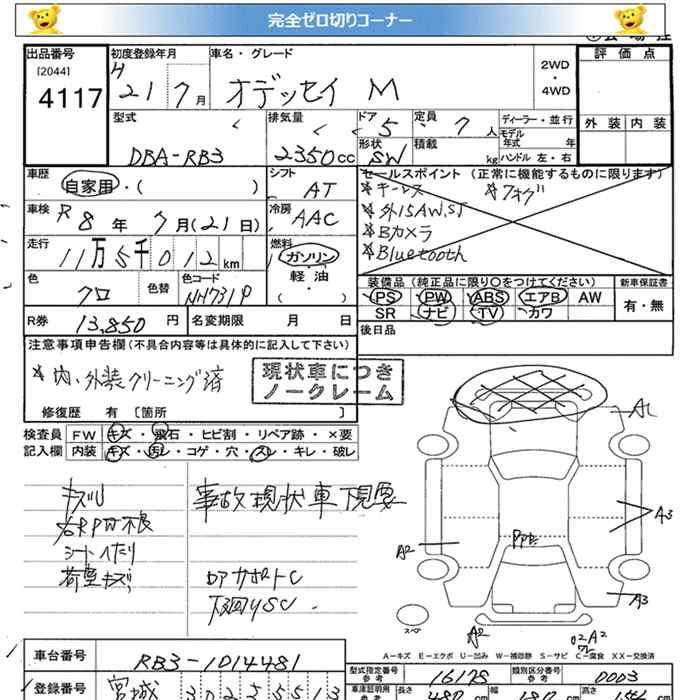 完全ゼロ切りコーナー
出品番号 初度登録年月 車名・グレード 2WD・4WD 評価点
[2044]
4117 H 21 7月 オデッセイ M
外装 内装
型式 排気量 ドア 5 定員 7人 ディーラー・並行
DBA-RB3 2350cc 形状 SW 積載 kg モデル年式 年
ハンドル 左・右
車歴 シフト セールスポイント (正常に機能するものに限ります)
自家用・( ) AT *キーレス *フォグ
車検 R8年 7月(21日) 冷房 AAC *外15AW,ST
*Bカメラ
走行 11万5千012km 燃料 ガソリン *Bluetooth
軽・油
( ・ )
色 クロ 色替 色コード NH731P
装備品 (純正品に限り○をつけてください) 新車保証書
PS PW ABS エアB AW 有・無
SR ナビ TV カワ
R券 13,850円 名変期限 月 日 後日品
注意事項申告欄 (不具合内容等は具体的に記入して下さい)
*内、外装クリーニング済
現状車につき
ノークレーム
修復歴 有 [箇所 ]
検査員 FW キズ・飛石・ヒビ割・リペア跡・×要
記入欄 内装 キズ・汚レ・コゲ・穴・スレ・キレ・破レ
キズU 事故現状車下見要
右RPW不良
シートヘたり
荷室キズ
ロアサポートC
下廻りSC
A1
A2
A3
A3
A2
スペア
A-キズ E-エクボ U-凹み W-補修跡 S-サビ C-腐食 XX-交換済
車台番号 RB3-1014481
型式指定番号 参考 16175 類別区分番号 参考 0003
登録番号 宮城
車庫証明用 長さ 480 cm 幅 cm 高さ cm